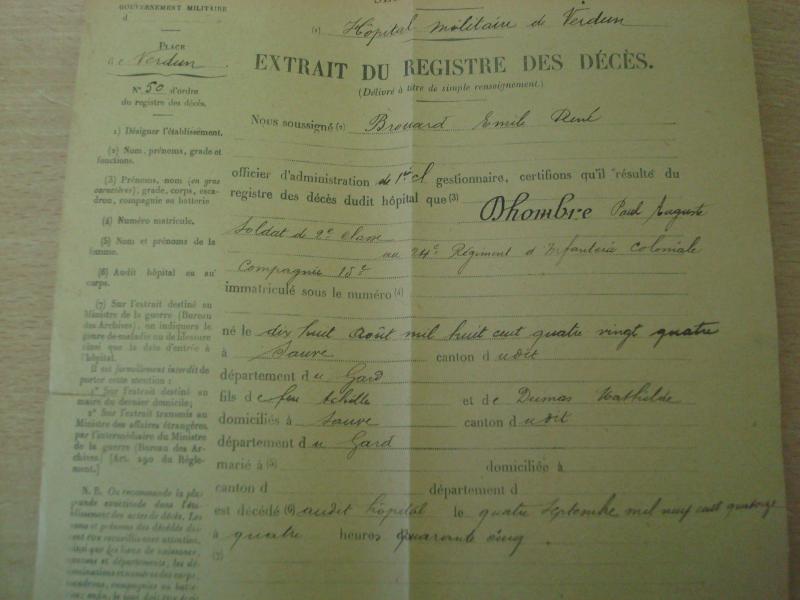 GOUVERNEMENT MILITAIRE
d
PLACE
de Verdun
N° 50 d'ordre
du registre des décès.
1) Désigner l'établissement.
(2) Nom, prénoms, grade et
fonctions.
(3) Prénoms, nom (en gros
caractères), grade, corps, esca-
dron, compagnie ou batterie
(4) Numéro matricule.
(5) Nom et prénoms de la
femme.
(6) Audit hôpital ou au
corps.
(7) Sur l'extrait destiné au
Ministre de la guerre (Bureau
des Archives), on indiquera le
genre de maladie ou de blessure
ainsi que la date d'entrée à
l'hôpital.
Il est formellement interdit de
porter cette mention :
1° Sur l'extrait destiné au
maire du dernier domicile;
2° Sur l'extrait transmis au
Ministre des affaires étrangères
par l'intermédiaire du Ministre
de la guerre (Bureau des Ar-
chives) [Art. 290 du Règle-
ment.]
N. B. On recommande la plus
grande exactitude dans l'éta-
blissement des actes de décès. Les
noms et prénoms des décédés doi-
vent être recueillis avec attention,
ainsi que les lieux de naissance,
cantons et départements, les dé-
nominations et numéros des corps,
escadrons, compagnies ou batte-
(1) Hôpital militaire de Verdun
EXTRAIT DU REGISTRE DES DÉCÈS.
(Délivré à titre de simple renseignement.)
Nous soussigné (2) Brouard Emile René
officier d'administration de 1ère cl gestionnaire, certifions qu'il résulte du
registre des décès dudit hôpital que (3) Dhombre Paul Auguste
Soldat de 2e classe
au 24e Régiment d'Infanterie coloniale
Compagnie 15e
immatriculé sous le numéro (4)
né le dix huit Août mil huit cent quatre vingt quatre
à Sauve canton d udit
département du Gard
fils de feu Achille et de Dumas Mathilde
domiciliés à Sauve canton d udit
département du Gard
marié à (5) domiciliée à
canton d département d
est décédé (6) audit hôpital le quatre Septembre mil neuf cent quatorze
à quatre heures quarante cinq.
(7)